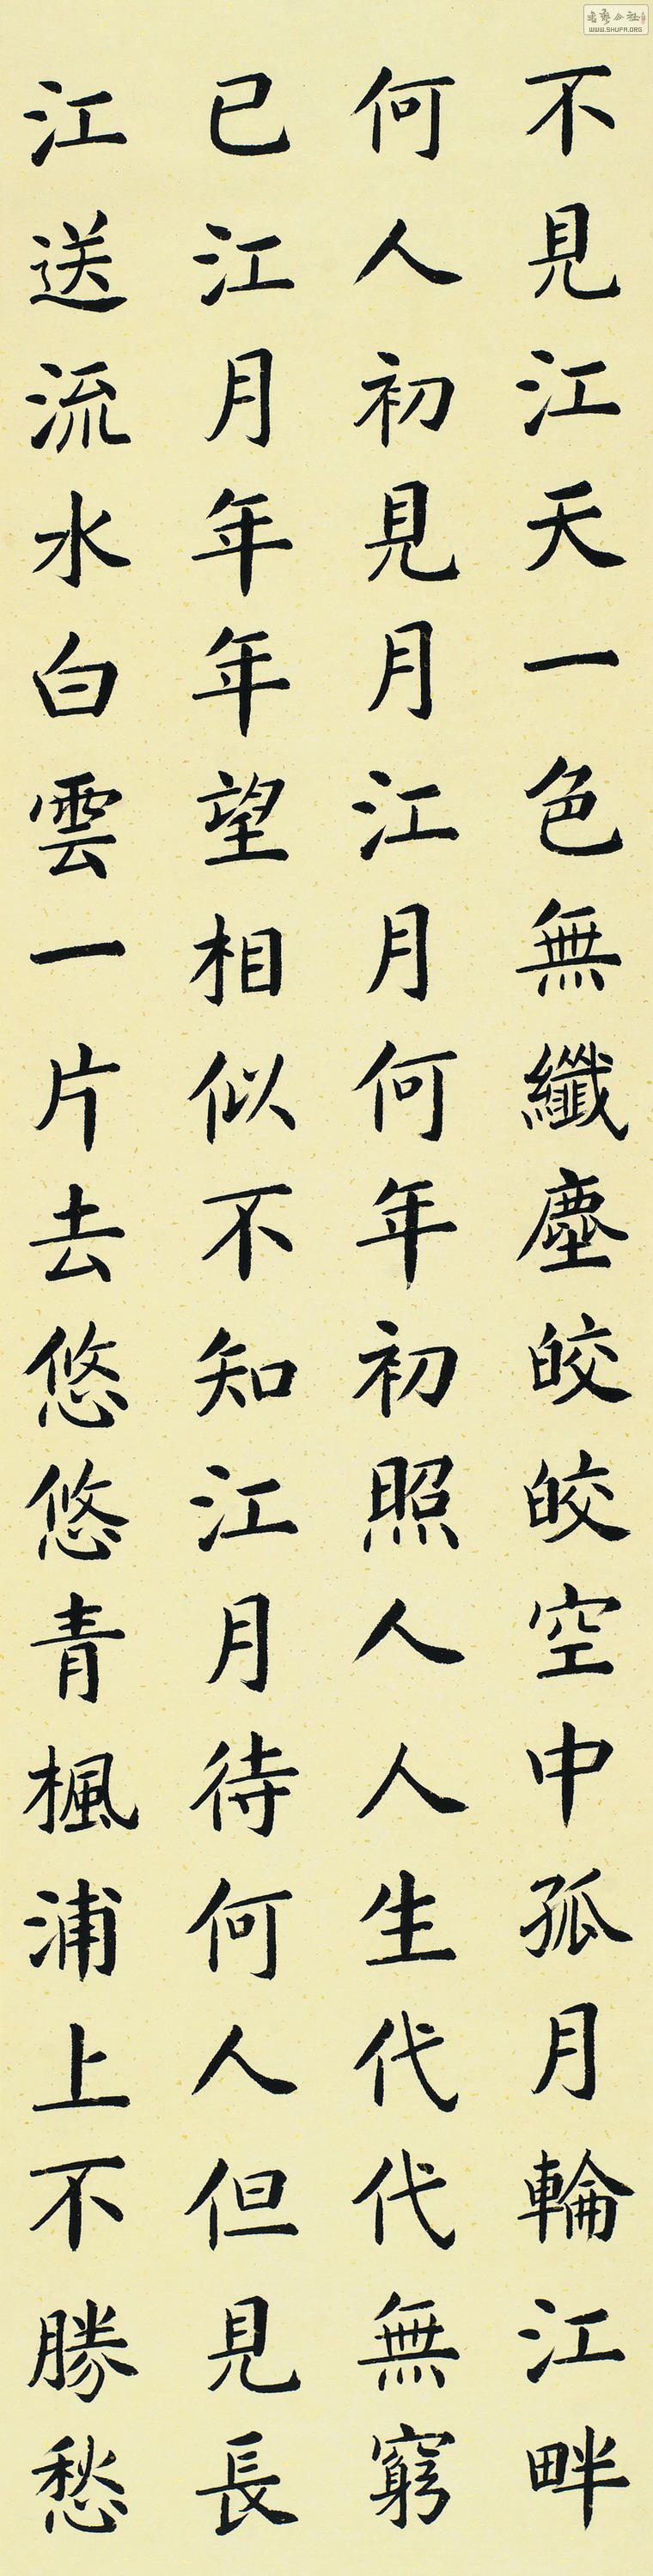 不見江天一色無纖塵皎皎空中孤月輪江畔
何人初見月江月何年初照人人生代代無窮
已江月年年望相似不知江月待何人但見長
江送流水白雲一片去悠悠青楓浦上不勝愁
WWW.SHUFA.ORG